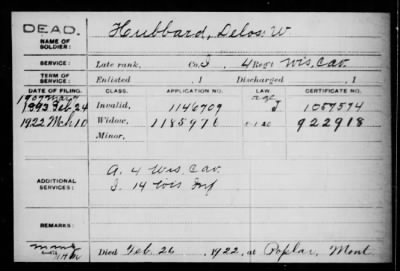 DEAD.
NAME OF SOLDIER: Hubbard, Delos W
SERVICE: Late rank, Co. I, 4 Reg't Wis. Cav.
TERM OF SERVICE: Enlisted , 1 Discharged , 1
DATE OF FILING. CLASS. APPLICATION NO. LAW. CERTIFICATE NO.
Feb. 24 Invalid, 1146709 age J 1057574
1922 Mch 10 Widow, 1185976 922918
Minor,
ADDITIONAL SERVICES:
A. 4 Wis. Cav
I. 14 Wis Inf
REMARKS:
Died Feb. 26, 1922, at Poplar, Mont